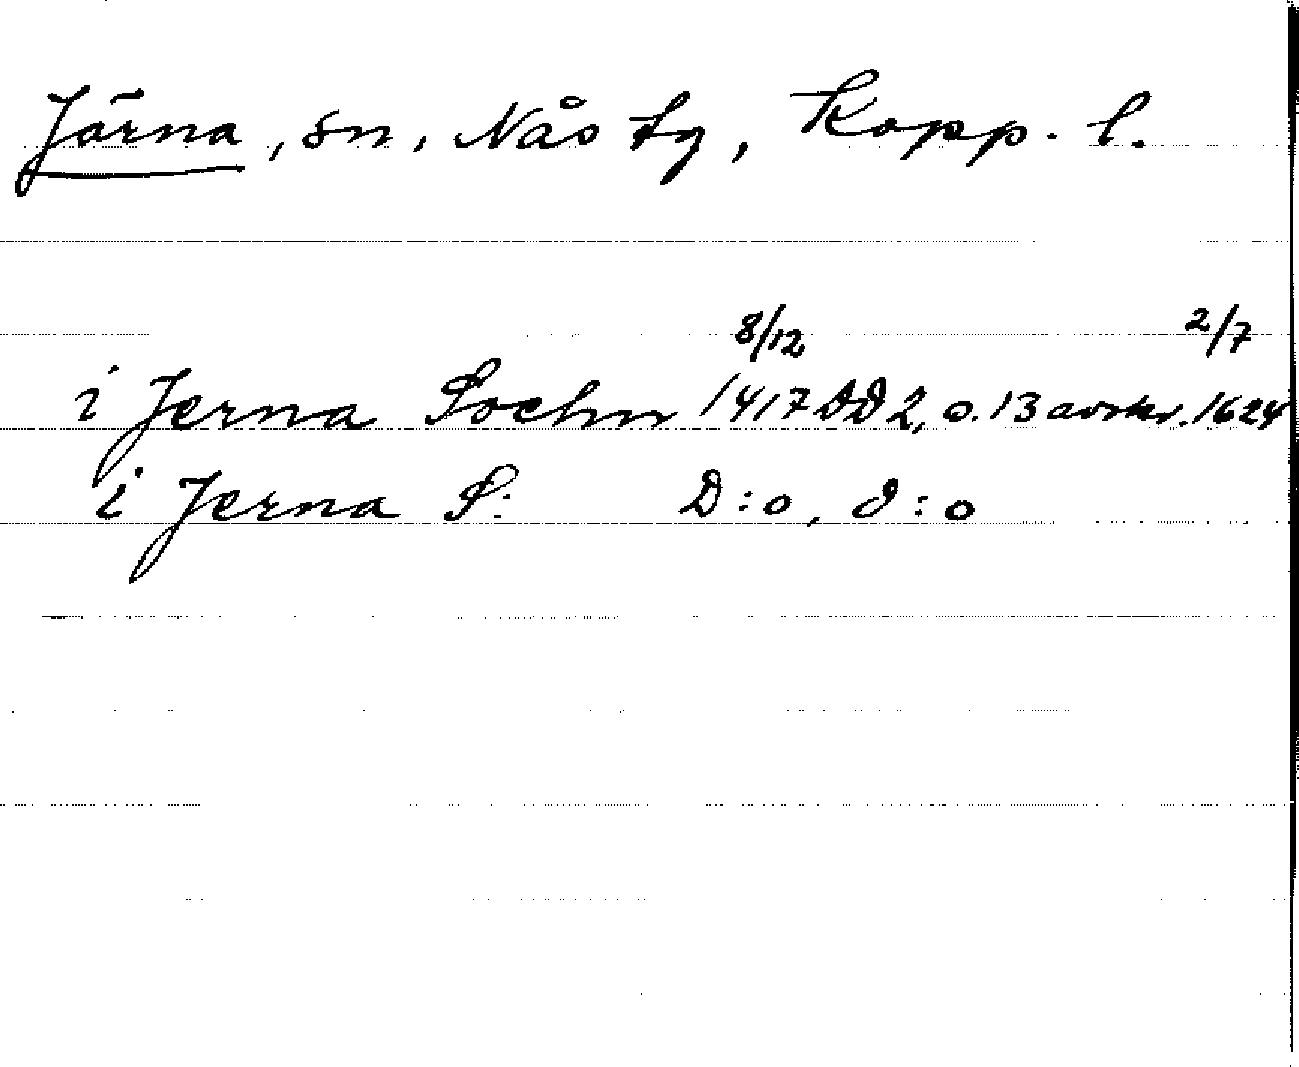 Järna, sn, Nås tg, Kopp. l.
8/12 2/7
i Jerna Sochn 1417 DD 2, o. 13 avskr. 1624
i Jerna S: D:o, d:o